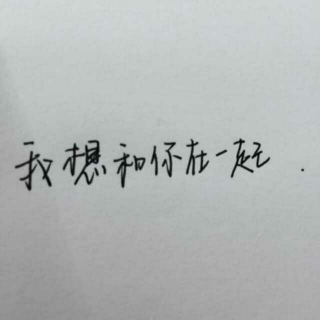 我想和你在一起.